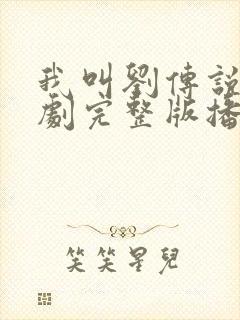 我叫劉傳說
劇完整版播
笑笑星兒